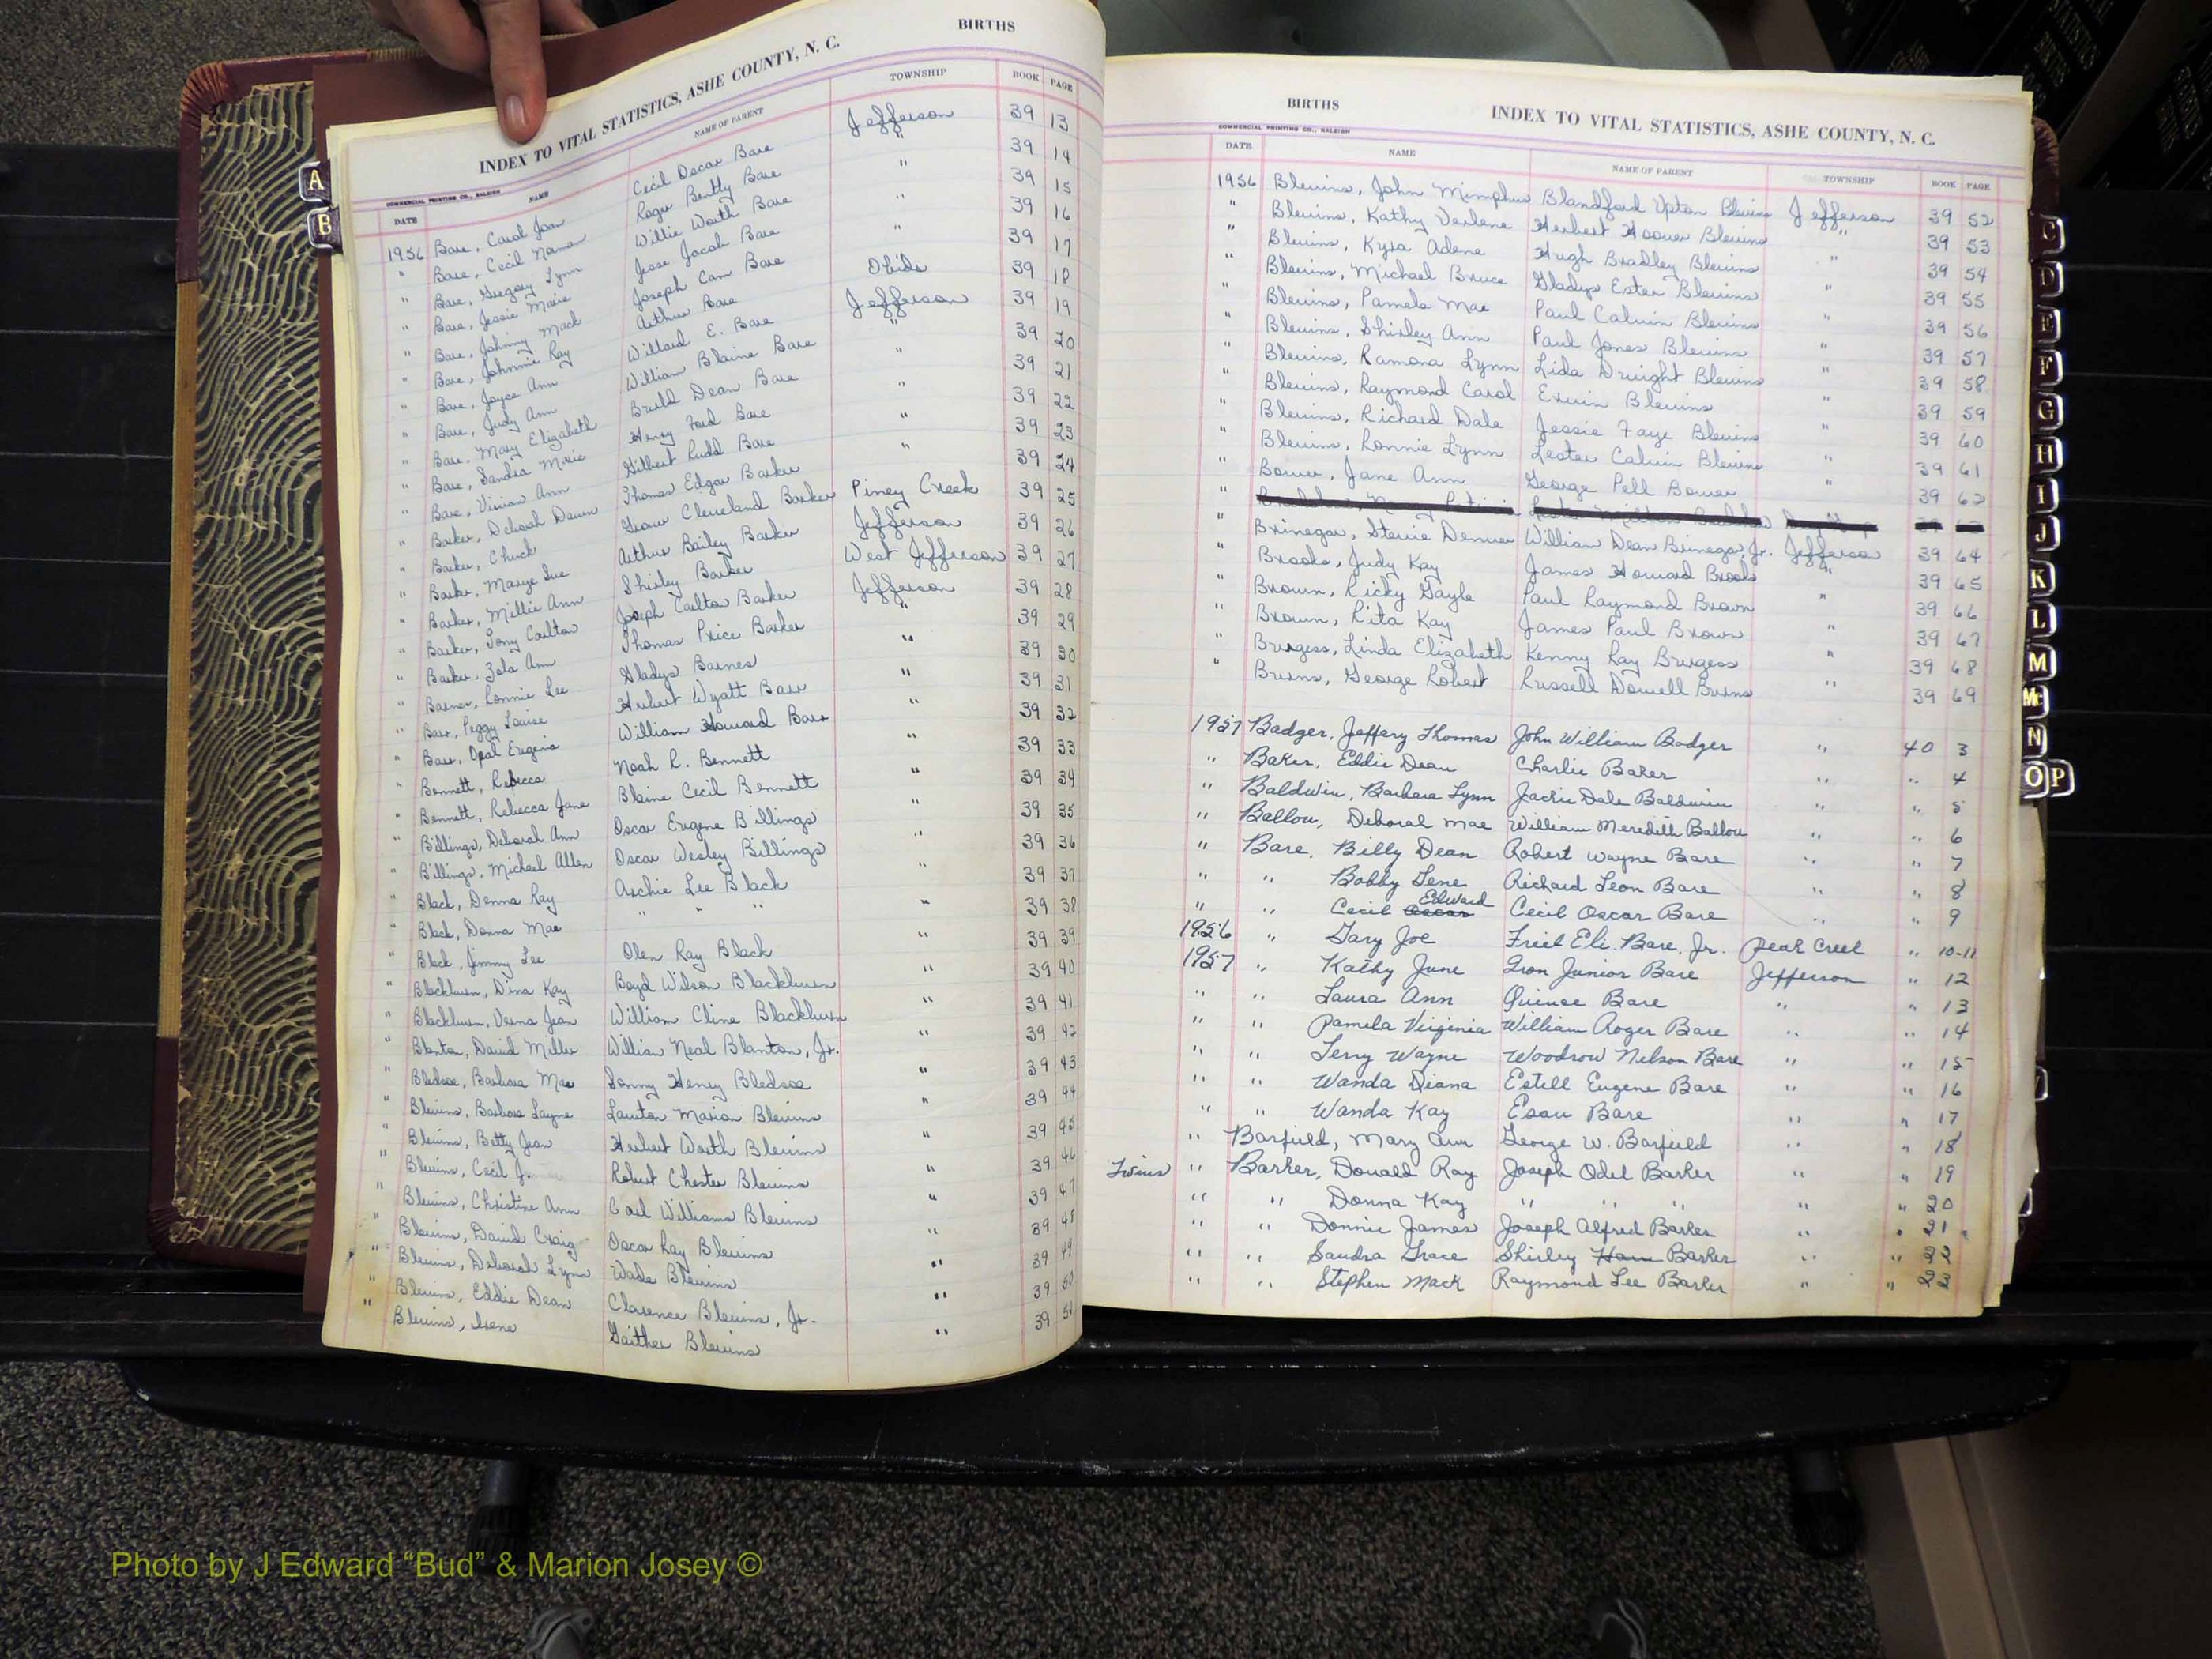 BIRTHS
INDEX TO VITAL STATISTICS, ASHE COUNTY, N. C.
COMMERCIAL PRINTING CO., RALEIGH
DATE NAME NAME OF PARENT TOWNSHIP BOOK PAGE
1956 Bare, Carol Jean Cecil Oscar Bare Jefferson 39 13
" Bare, Cecil Roger Bentty Bare " 39 14
" Bare, Gregory Lynn Willie Worth Bare " 39 15
" Bare, Jessie Marie Jesse Jacob Bare " 39 16
" Bare, Johnny Mack Joseph Cam Bare " 39 17
" Bare, Johnnie Ray Arthur Bare Obids 39 18
" Bare, Joyce Ann Willard E. Bare Jefferson 39 19
" Bare, Judy Ann William Blaine Bare " 39 20
" Bare, Mary Elizabeth Dean Bare " 39 21
" Bare, Sandra Marie Henry Ford Bare " 39 22
" Bare, Vivian Ann Gilbert Rudd Bare " 39 23
" Barker, Deborah Dawn Thomas Edgar Barker " 39 24
" Barker, Chuck Grover Cleveland Barker Piney Creek 39 25
" Barker, Marye Sue Arthur Bailey Barker Jefferson 39 26
" Barker, Millie Ann Shirley Barker West Jefferson 39 27
" Barker, Tony Carlton Joseph Carlton Barker Jefferson 39 28
" Barker, Zola Ann Thomas Price Barker " 39 29
" Barnes, Ronnie Lee Gladys Barnes " 39 30
" Barr, Peggy Louise Herbert Wyatt Barr " 39 31
" Barr, Opal Eugenia William Howard Barr " 39 32
" Bennett, Rebecca Noah R. Bennett " 39 33
" Bennett, Rebecca Jane Blaine Cecil Bennett " 39 34
" Billings, Deborah Ann Oscar Eugene Billings " 39 35
" Billings, Michael Allen Oscar Wesley Billings " 39 36
" Black, Denna Ray Archie Lee Black " 39 37
" Black, Donna Mae " " " " 39 38
" Black, Jimmy Lee Olen Ray Black " 39 39
" Blackburn, Dina Kay Boyd Wilson Blackburn " 39 40
" Blackburn, Verna Jean William Cline Blackburn " 39 41
" Blanton, David Miller William Neal Blanton, Jr. " 39 42
" Bledsoe, Barbara Mae Sonny Henry Bledsoe " 39 43
" Blevins, Barbara Layne Lawton Marion Blevins " 39 44
" Blevins, Betty Jean Herbert Worth Blevins " 39 45
" Blevins, Cecil Jr. Robert Chester Blevins " 39 46
" Blevins, Christine Ann Carl Williams Blevins " 39 47
" Blevins, David Craig Oscar Ray Blevins " 39 48
" Blevins, Deborah Lynn Wade Blevins " 39 49
" Blevins, Eddie Dean Clarence Blevins, Jr. " 39 50
" Blevins, Irene Gaither Blevins " 39 51
BIRTHS
INDEX TO VITAL STATISTICS, ASHE COUNTY, N. C.
COMMERCIAL PRINTING CO., RALEIGH
DATE NAME NAME OF PARENT TOWNSHIP BOOK PAGE
1956 Blevins, John Mimphus Blandford Upton Blevins Jefferson 39 52
" Blevins, Kathy Verlene Herbert Hoover Blevins " 39 53
" Blevins, Kyra Adene Hugh Bradley Blevins " 39 54
" Blevins, Michael Bruce Gladys Ester Blevins " 39 55
" Blevins, Pamela Mae Paul Calvin Blevins " 39 56
" Blevins, Shirley Ann Paul Jones Blevins " 39 57
" Blevins, Ramona Lynn Lida Dwight Blevins " 39 58
" Blevins, Raymond Carol Erwin Blevins " 39 59
" Blevins, Richard Dale Jessie Faye Blevins " 39 60
" Blevins, Ronnie Lynn Lester Calvin Blevins " 39 61
" Bower, Jane Ann George Pell Bower " 39 62
" Brinegar, Stevie Denver William Dean Brinegar, Jr. Jefferson 39 64
" Brooks, Judy Kay James Howard Brooks " 39 65
" Brown, Ricky Gayle Paul Raymond Brown " 39 66
" Brown, Rita Kay James Paul Brown " 39 67
" Burgess, Linda Elizabeth Kenny Ray Burgess " 39 68
" Burns, George Robert Russell Dowell Burns " 39 69
1957 Badger, Jeffery Thomas John William Badger " 40 3
" Baker, Eddie Dean Charlie Baker " " 4
" Baldwin, Barbara Lynn Jackie Dale Baldwin " " 5
" Ballou, Deborah Mae William Meredith Ballou " " 6
" Bare, Billy Dean Robert Wayne Bare " " 7
" " Bobby Gene Richard Leon Bare " " 8
Edward
" " Cecil Oscar Cecil Oscar Bare " " 9
1956 " Gary Joe Friel Eli Bare, Jr. Peak Creek " 10-11
1957 " Kathy June Iron Junior Bare Jefferson " 12
" " Laura Ann Quince Bare " " 13
" " Pamela Virginia William Roger Bare " " 14
" " Terry Wayne Woodrow Nelson Bare " " 15
" " Wanda Diana Estell Eugene Bare " " 16
" " Wanda Kay Esau Bare " " 17
" Barfield, Mary Ann George W. Barfield " " 18
Twins " Barker, Donald Ray Joseph Odel Barker " " 19
" " Donna Kay " " " " " 20
" " Donnie James Joseph Alfred Barker " " 21
" " Sandra Grace Shirley Barker " " 22
" " Stephen Mack Raymond Lee Barker " " 23
A
B
C
D
E
F
G
H
I
J
K
L
M
Mc
N
O P
Photo by J Edward “Bud” & Marion Josey ©